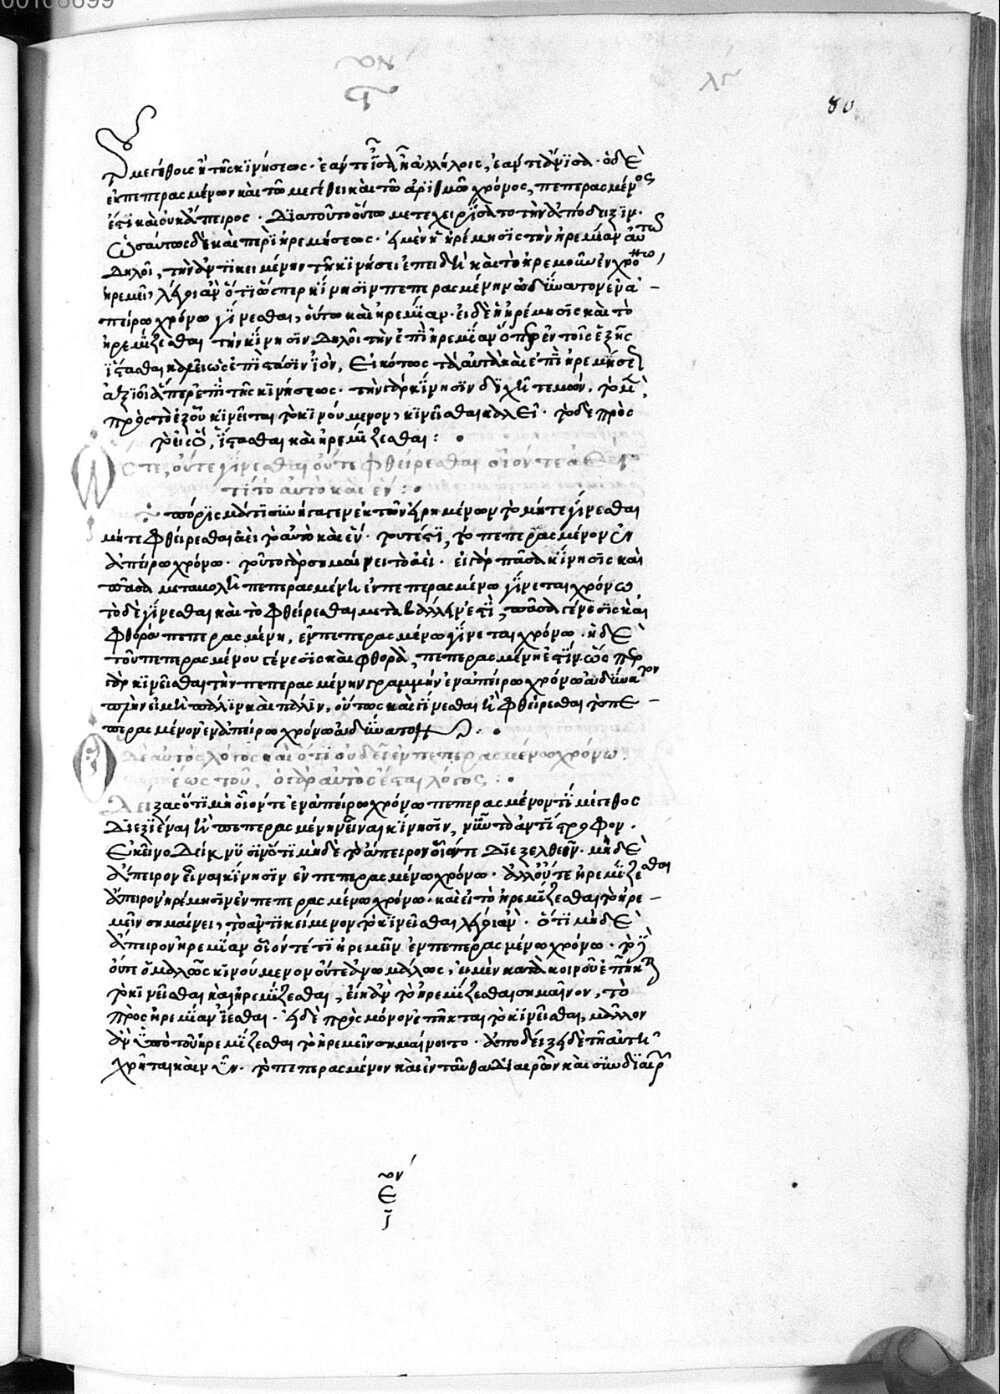 80
μεγέθοις ἢ τῆς κινήσεως· ἐάν τε ἴσα ᾖ ἀλλήλοις, ἐάν τε ἄνισα· ὁ δὲ
ἐκ πεπερασμένων καὶ τῷ μεγέθει καὶ τῷ ἀριθμῷ χρόνος, πεπερασμένος
ἐστὶ καὶ οὐκ ἄπειρος· διὰ τοῦτο οὕτω μετεχειρίσατο τὴν ἀπόδειξιν·
ὡσαύτως δὲ καὶ περὶ ἠρεμήσεως· εἰ μὲν ἡ ἠρέμησις τὴν ἠρεμίαν αὐτῷ
δηλοῖ, τὴν ἀντικειμένην τῇ κινήσει ἐπειδὴ καὶ τὸ ἠρεμοῦν ἐν χρόνῳ
ἠρεμεῖ, λέγοι ἂν ὅτι ὥσπερ κίνησιν πεπερασμένην ἀδύνατον ἐν ἀ-
πείρῳ χρόνῳ γίνεσθαι, οὕτω καὶ ἠρεμίαν· εἰ δὲ ἡ ἠρέμησις καὶ τὸ
ἠρεμίζεσθαι τὴν κίνησιν δηλοῖ τὴν ἐπὶ ἠρεμίαν ὅπερ ἐν τοῖς ἑξῆς
ἵστασθαι κυρίως ἐπὶ στάσιν ἰόν, εἰκότως τὰ αὐτὰ καὶ ἐπὶ ἠρεμήσεως
ἀξιοῖ ἅπερ ἐπὶ τῆς κινήσεως· τὴν γὰρ κίνησιν διχῇ τεμών, τὸ μὲν
πρὸς τὸ ἐξ οὗ κινεῖται τὸ κινούμενον, κινεῖσθαι καλεῖ· τὸ δὲ πρὸς
τὸ εἰς ὅ, ἵστασθαι καὶ ἠρεμίζεσθαι:
Ὥστε, οὔτε γίνεσθαι οὔτε φθείρεσθαι οἷόν τε ἀεί
τι τὸ αὐτὸ καὶ ἕν:
πόρισμά τι συνήγαγεν ἐκ τῶν εἰρημένων τὸ μήτε γίνεσθαι
μήτε φθείρεσθαι ἀεὶ τὸ αὐτὸ καὶ ἕν· τουτέστι, τὸ πεπερασμένον ἐν
ἀπείρῳ χρόνῳ· τοῦτο γὰρ σημαίνει τὸ ἀεί· εἰ γὰρ πᾶσα κίνησις καὶ
πᾶσα μεταβολὴ πεπερασμένη ἐν πεπερασμένῳ γίνεται χρόνῳ
τὸ δὲ γίνεσθαι καὶ τὸ φθείρεσθαι μεταβάλλειν ἐστὶ, πᾶσα γένεσις καὶ
φθορὰ πεπερασμένη, ἐν πεπερασμένῳ γίνεται χρόνῳ· ἡ δὲ
τοῦ πεπερασμένου γένεσις καὶ φθορὰ, πεπερασμένη ἐστίν· ὥσπερ
γὰρ κινεῖσθαι τὴν πεπερασμένην γραμμὴν ἐν ἀπείρῳ χρόνῳ ἀδύνατον
πλὴν εἰ μὴ πάλιν καὶ πάλιν, οὕτως καὶ γίνεσθαι ἢ φθείρεσθαι τὸ πε-
περασμένον ἐν ἀπείρῳ χρόνῳ ἀδύνατον:
Ὁ δὲ αὐτὸς λόγος καὶ ὅτι οὐδὲ ἐν πεπερασμένῳ χρόνῳ
ἕως τοῦ, ὁ γὰρ αὐτὸς ἔσται λόγος:
Δείξας ὅτι μὴ οἷόν τε ἐν ἀπείρῳ χρόνῳ πεπερασμένον τι μέγεθος
διεξιέναι ἢ πεπερασμένην εἶναι κίνησιν, νῦν τὸ ἀντίστροφον
ἐκεῖνο δείκνυσιν ὅτι μηδὲ τὸ ἄπειρον οἷόν τε διεξελθεῖν· μηδὲ
ἄπειρον εἶναι κίνησιν ἐν πεπερασμένῳ χρόνῳ· ἀλλ' οὔτε ἠρεμίζεσθαι
ἄπειρον ἠρέμησιν ἐν πεπερασμένῳ χρόνῳ· καὶ εἰ τὸ ἠρεμίζεσθαι τὸ ἠρε-
μεῖν σημαίνει, τὸ ἀντικείμενον τῷ κινεῖσθαι λέγοι ἂν· ὅτι μηδὲ
ἄπειρον ἠρεμίαν οἷόν τέ τι ἠρεμεῖν ἐν πεπερασμένῳ χρόνῳ· τὸ δὲ
οὔτε ὁμαλῶς κινούμενον οὔτε ἀνωμάλως, εἰ μὲν κατὰ κοινοῦ ἐπῆκται
τὸ κινεῖσθαι καὶ ἠρεμίζεσθαι, εἴη ἂν τὸ ἠρεμίζεσθαι σημαῖνον, τὸ
πρὸς ἠρεμίαν ἰέσθαι· εἰ δὲ πρὸς μόνον ἐπῆκται τὸ κινεῖσθαι, μᾶλλον
ἂν ὑπὸ τοῦ ἠρεμίζεσθαι τὸ ἠρεμεῖν σημαίνοιτο· ἀποδείξει δὲ τῇ αὐτῇ
χρῆται καὶ νῦν· τὸ πεπερασμένον καὶ ἐνταῦθα διαιρῶν καὶ συνδιαιρῶν